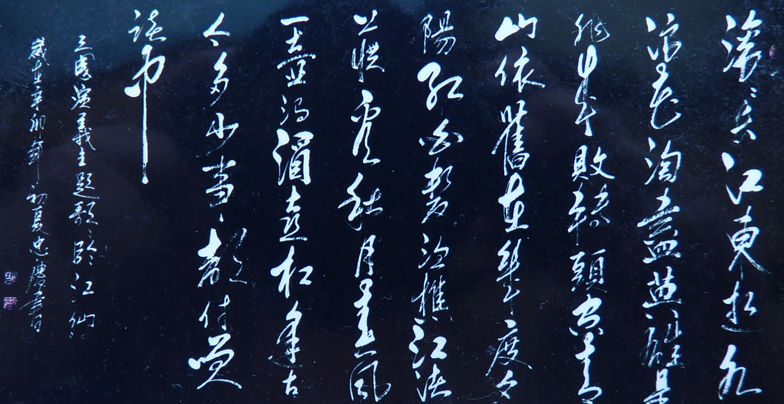 滚滚长江東逝水
浪花淘盡英雄是
非成敗轉頭空青
山依舊在幾度夕
陽紅白髮漁樵江渚
上慣看秋月春風
一壺濁酒喜相逢古
今多少事都付笑
談中
三國演義主題歌臨江仙
歲在辛卯年初夏忠書